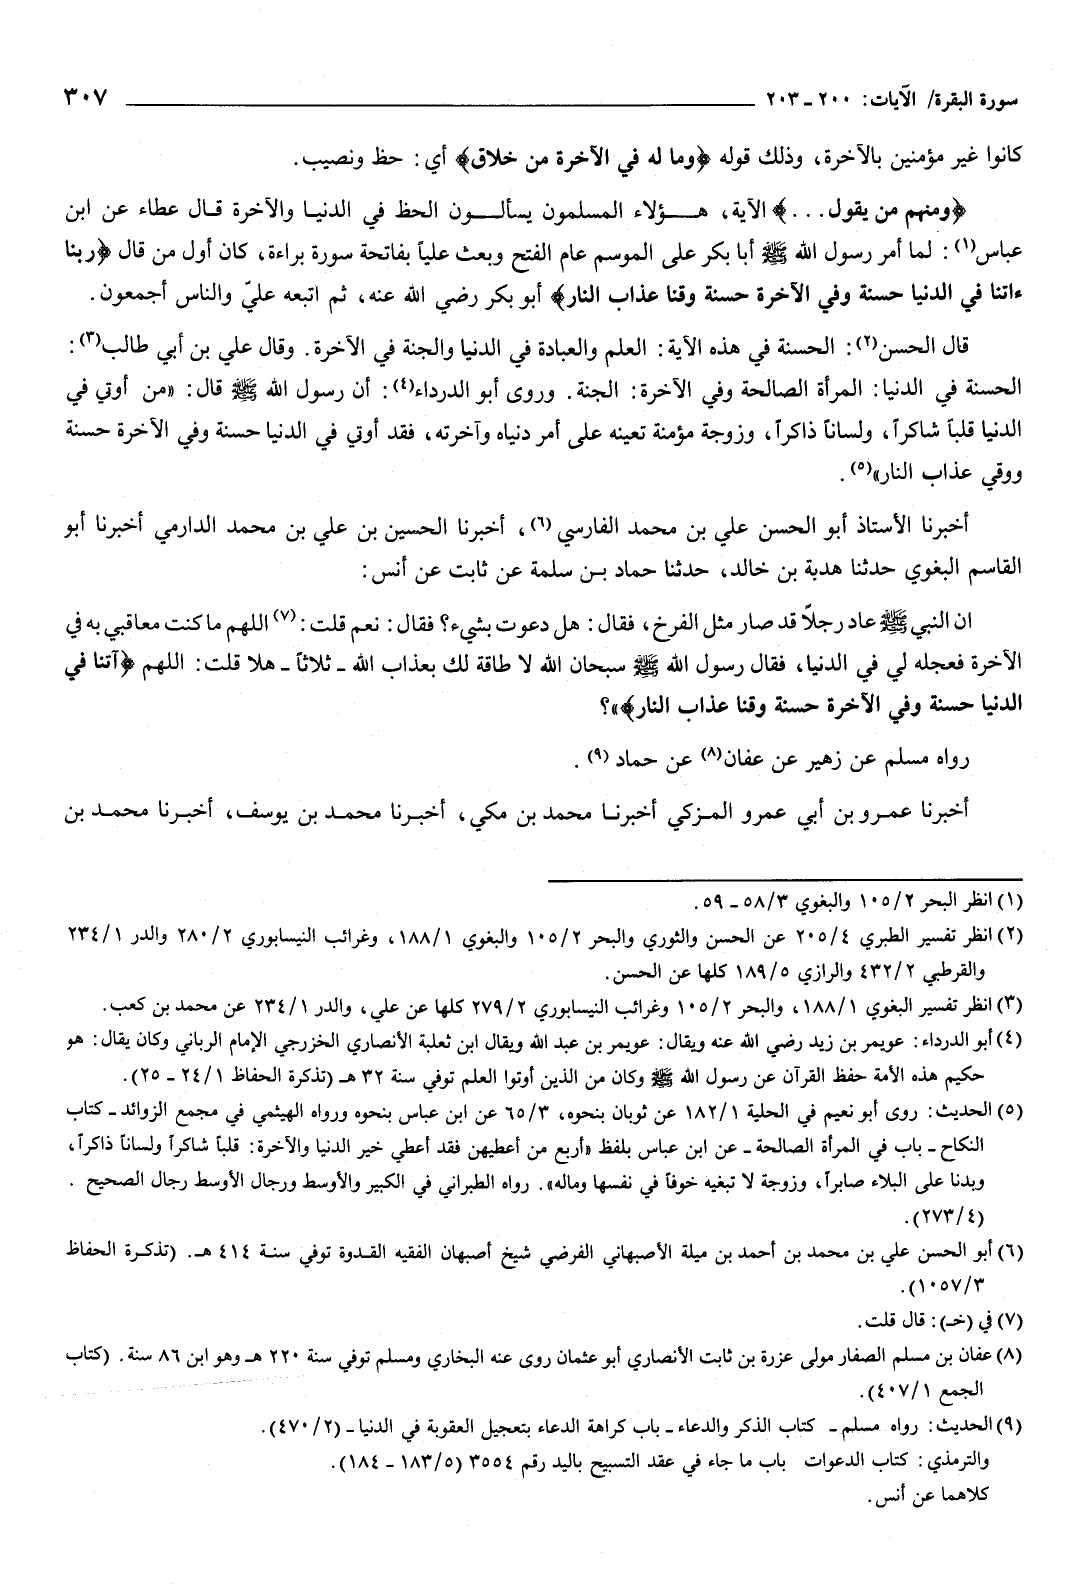 سورة البقرة/ الآيات: ٢٠٠ ـ ٢٠٣ ٣٠٧
كانوا غير مؤمنين بالآخرة، وذلك قوله ﴿وما له في الآخرة من خلاق﴾ أي: حظ ونصيب.
﴿ومنهم من يقول...﴾ الآية، هـؤلاء المسلمون يسألـون الحظ في الدنيا والآخرة قال عطاء عن ابن
عباس(١): لما أمر رسول الله ﷺ أبا بكر على الموسم عام الفتح وبعث علياً بفاتحة سورة براءة، كان أول من قال ﴿ربنا
ءاتنا في الدنيا حسنة وفي الآخرة حسنة وقنا عذاب النار﴾ أبو بكر رضي الله عنه، ثم اتبعه عليّ والناس أجمعون.
قال الحسن(٢): الحسنة في هذه الآية: العلم والعبادة في الدنيا والجنة في الآخرة. وقال علي بن أبي طالب(٣):
الحسنة في الدنيا: المرأة الصالحة وفي الآخرة: الجنة. وروى أبو الدرداء(٤): أن رسول الله ﷺ قال: «من أوتي في
الدنيا قلباً شاكراً، ولساناً ذاكراً، وزوجة مؤمنة تعينه على أمر دنياه وآخرته، فقد أوتي في الدنيا حسنة وفي الآخرة حسنة
ووقي عذاب النار»(٥).
أخبرنا الأستاذ أبو الحسن علي بن محمد الفارسي(٦)، أخبرنا الحسين بن علي بن محمد الدارمي أخبرنا أبو
القاسم البغوي حدثنا هدبة بن خالد، حدثنا حماد بن سلمة عن ثابت عن أنس:
ان النبي ﷺ عاد رجلاً قد صار مثل الفرخ، فقال: هل دعوت بشيء؟ فقال: نعم قلت:(٧) اللهم ما كنت معاقبي به في
الآخرة فعجله لي في الدنيا، فقال رسول الله ﷺ سبحان الله لا طاقة لك بعذاب الله ـ ثلاثاً ـ هلا قلت: اللهم ﴿آتنا في
الدنيا حسنة وفي الآخرة حسنة وقنا عذاب النار﴾»؟
رواه مسلم عن زهير عن عفان(٨) عن حماد (٩).
أخبرنا عمرو بن أبي عمرو المزكي أخبرنا محمد بن مكي، أخبرنا محمد بن يوسف، أخبرنا محمد بن
(١) انظر البحر ١٠٥/٢ والبغوي ٥٨/٣ ـ ٥٩.
(٢) انظر تفسير الطبري ٢٠٥/٤ عن الحسن والثوري والبحر ١٠٥/٢ والبغوي ١٨٨/١، وغرائب النيسابوري ٢٨٠/٢ والدر ٢٣٤/١
والقرطبي ٤٣٢/٢ والرازي ١٨٩/٥ كلها عن الحسن.
(٣) انظر تفسير البغوي ١٨٨/١، والبحر ١٠٥/٢ وغرائب النيسابوري ٢٧٩/٢ كلها عن علي، والدر ٢٣٤/١ عن محمد بن كعب.
(٤) أبو الدرداء: عويمر بن زيد رضي الله عنه ويقال: عويمر بن عبد الله ويقال ابن ثعلبة الأنصاري الخزرجي الإمام الرباني وكان يقال: هو
حكيم هذه الأمة حفظ القرآن عن رسول الله ﷺ وكان من الذين أوتوا العلم توفي سنة ٣٢ هـ (تذكرة الحفاظ ٢٤/١ ـ ٢٥).
(٥) الحديث: روى أبو نعيم في الحلية ١٨٢/١ عن ثوبان بنحوه، ٦٥/٣ عن ابن عباس بنحوه ورواه الهيثمي في مجمع الزوائد ـ كتاب
النكاح ـ باب في المرأة الصالحة ـ عن ابن عباس بلفظ «أربع من أعطيهن فقد أعطي خير الدنيا والآخرة: قلباً شاكراً ولساناً ذاكراً،
وبدنا على البلاء صابراً، وزوجة لا تبغيه خوفاً في نفسها وماله». رواه الطبراني في الكبير والأوسط ورجال الأوسط رجال الصحيح.
(٢٧٣/٤).
(٦) أبو الحسن علي بن محمد بن أحمد بن ميلة الأصبهاني الفرضي شيخ أصبهان الفقيه القدوة توفي سنة ٤١٤ هـ. (تذكرة الحفاظ
١٠٥٧/٣).
(٧) في (خـ): قال قلت.
(٨) عفان بن مسلم الصفار مولى عزرة بن ثابت الأنصاري أبو عثمان روى عنه البخاري ومسلم توفي سنة ٢٢٠ هـ وهو ابن ٨٦ سنة. (كتاب
الجمع ٤٠٧/١).
(٩) الحديث: رواه مسلم ـ كتاب الذكر والدعاء ـ باب كراهة الدعاء بتعجيل العقوبة في الدنيا ـ (٤٧٠/٢).
والترمذي: كتاب الدعوات باب ما جاء في عقد التسبيح باليد رقم ٣٥٥٤ (١٨٣/٥ ـ ١٨٤).
كلاهما عن أنس.